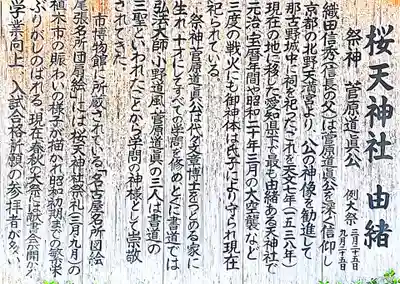 桜天神社 由緒
祭神 菅原道真公 例大祭 三月二十五日 九月二十五日
織田信秀(信長の父)は菅原道真公を深く信仰し
京都の北野天満宮より、公の神像を勧進して
那古野城中に祠を祀った。これを天文七年(一五三八年)
現在の地に移した愛知県下で最も由緒ある天神社で
元治、宝暦年間や昭和二十年三月の大空襲など
三度の戦火にも御神体は氏子により守られ現在
祀られている。
祭神菅原道真公は代々文章博士をつとめる家に
生れ、十才にしてすべての学問を修めとくに書道では
弘法大師、小野道風、菅原道真の三人は書道の
三聖といわれたことから学問の神様として崇敬
されてきた。
市博物館に所蔵されている「名古屋名所図絵
尾張名所団扇絵」には桜天神社祭礼(三月九月)の
植木市の賑わいの様子が描かれ昭和初期までの繁栄
ぶりがしのばれる。現在春秋の大祭には献書会が開か
学業向上、入試合格祈願の参拝者が多い